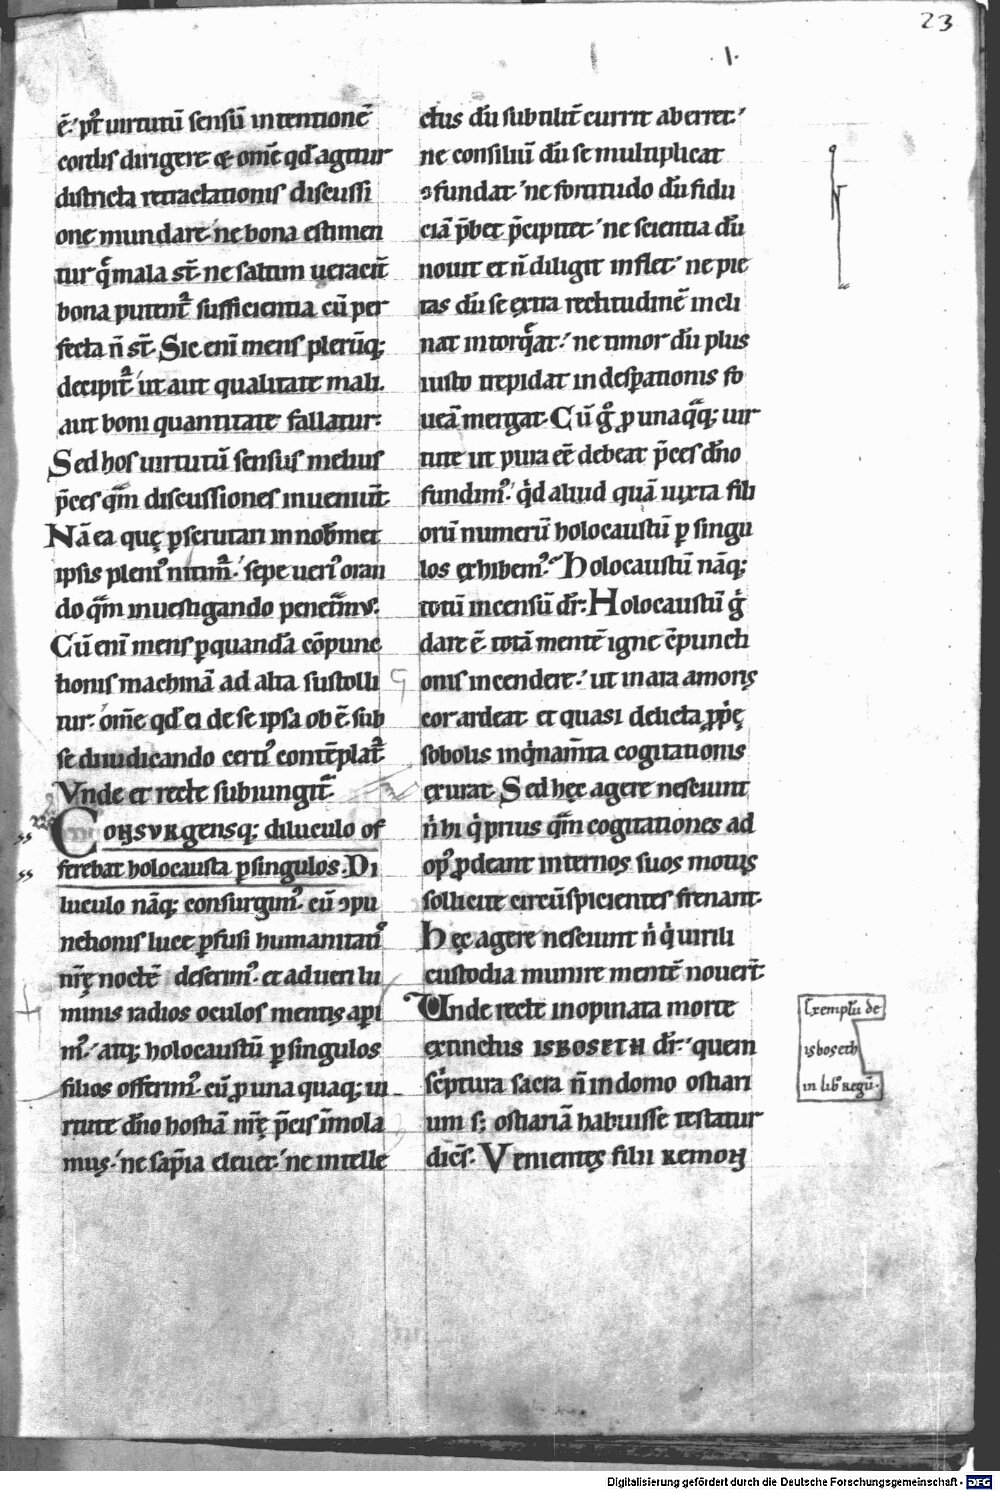 23
I.
ē. p̄t uirtutū sensū intentionē
cordis dirigere & om̄e qd̄ agitur
districta retractationis discussi
one mundare. ne bona estimen
tur q̄ mala st̄. ne saltim ueracit̄
bona putent᷑ sufficientia cū per
fecta n̄ st̄. Sic eni mens plerūq;
decipit᷑ ut aut qualitate mali.
aut boni quantitate fallatur.
Sed hos uirtutū sensus melius
p̄ces qm̄ discussiones inueniūt.
Nā ea quę pscrutari in nob̄met
ipsis pleni᷒ nitim᷑. sepe ueri᷒ oran
do qm̄ inuestigando penetm̄us.
Cū eni mens p quandā cōpunc
tionis machinā ad alta sustolli
tur. om̄e qd̄ ei de se ipsa obē sub
se diiudicando certi᷒ contēplat᷑
Vnde et recte subiungit᷑
Consurgensq; diluculo of
ferebat holocausta p singulos. Di
luculo nāq; consurgim᷒. cū ↄpu
nctionis luce p̱fusi humanitatis
nr̄ę noctē deserim᷒. et ad ueri lu
minis radios oculos mentis api
m᷒. atq; holocaustū p singulos
filios offerim᷒. cū p una quaq; ui
rtute dn̄o hostiā nr̄ę p̄cis īmola
mus. ne sap̄ia eleuet. ne intelle
ctus dū subtilit̄ currit aberret.
ne consiliū dū se multiplicat
ↄfundat. ne fortitudo dū fidu
ciā p̄bet p̄cipitet. ne scientia dū
nouit et n̄ diligit inflet. ne pie
tas dū se extra rectitudinē incli
nat intorq̄at. ne timor dū plus
iusto trepidat in desp̱ationis fo
ueā mergat. Cū g̊ p una q̄q; uir
tute ut pura eē debeat p̄ces dn̄o
fundim᷒. qd̄ aliud quā iuxta fili
orū numerū holocaustū p singu
los exhibem᷒. Holocaustū nāq;
totū incensū dr̄. Holocaustū g̊
dare ē. totā mentē igne cōpuncti
onis incendere. ut in ara amoris
cor ardeat et quasi delicta pp̄ę
sobolis inq̊namta cogitationis
exurat. Sed hęc agere nesciunt
n̄ hi q̊ prius qm̄ cogitationes ad
op᷒ pdeant internos suos motus
sollicite circūspicientes frenant.
Hęc agere nesciunt n̄ q̊ uirili
custodia munire mentē nouert̄.
Unde recte inopinata morte
extinctus ISBOSETH dr̄. quem
scp̄tura sacra n̄ in domo ostiari
um s; ostiariā habuisse testatur
dicēs. Venientes filii REMON
Exemplū de
isboseth
in lib̄ regū.
Digitalisierung gefördert durch die Deutsche Forschungsgemeinschaft - DFG